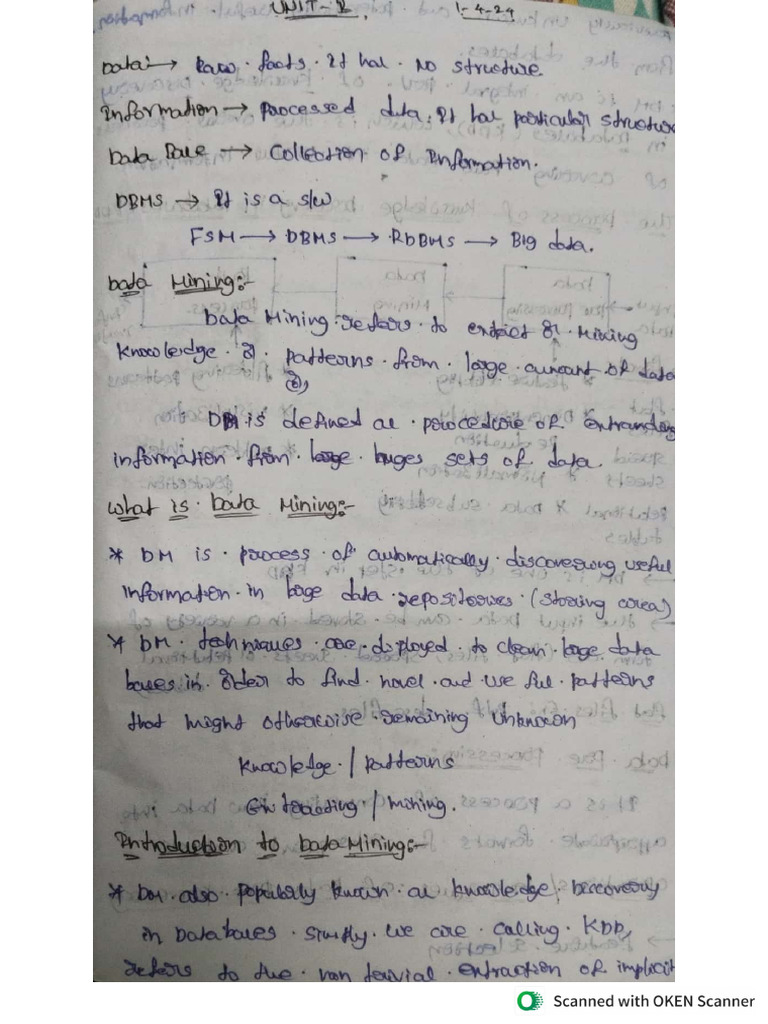 UNIT-I 1-4-24
Data:→ Raw facts. It has No structure.
Information → Processed data. It has particular structure
Data Base → Collection of Information.
DBMS → It is a s/w
FSM → DBMS → RDBMS → Big data.
Data Mining:-
Data Mining refers to extract or Mining
knowledge or patterns from large amount of data
(or)
DM is defined as procedure of
information from large huges sets of data.
What is Data Mining:-
* DM is process of automatically discovering useful
information in large data repositories (storing area)
* DM techniques are displayed to clean large data
bases in order to find novel and use ful patterns
that might otherwise remaining unknown
Knowledge / patterns
Extracting / mining.
Introduction to Data Mining:-
* DM also popularly known as knowledge Discovery
in Databases simply we are calling KDD,
refers to the non tervial extraction of implicit
Scanned with OKEN Scanner